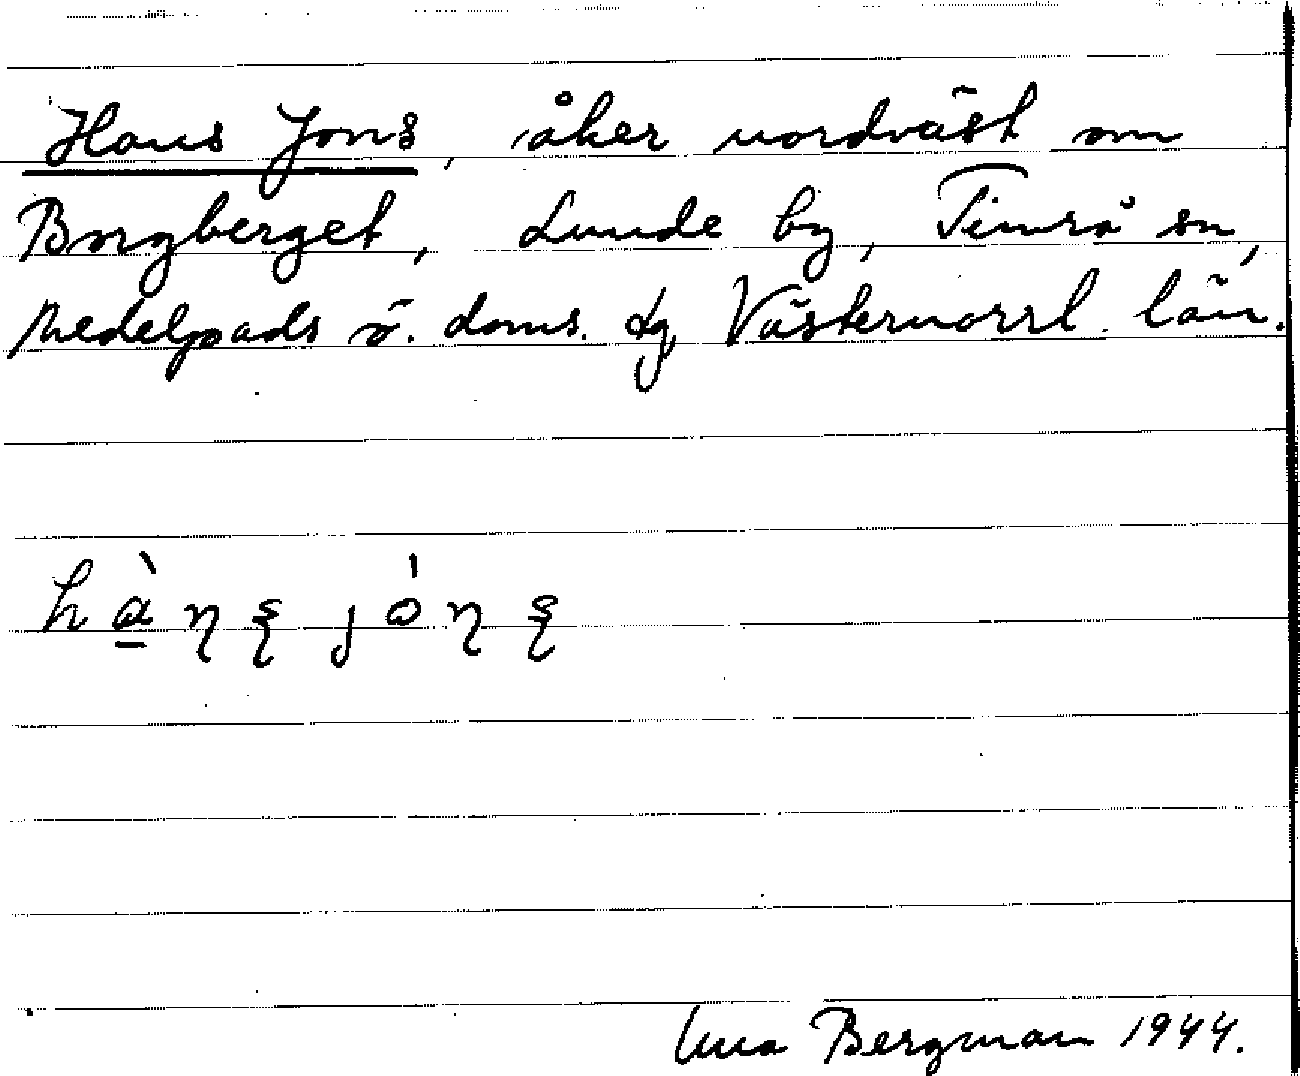 Hans Jons, åker nordväst om
Borgberget, Lunde by, Timrå sn,
Medelpads ö. doms. dg Västernorrl. län.
hànş jónş
Una Bergman 1944.